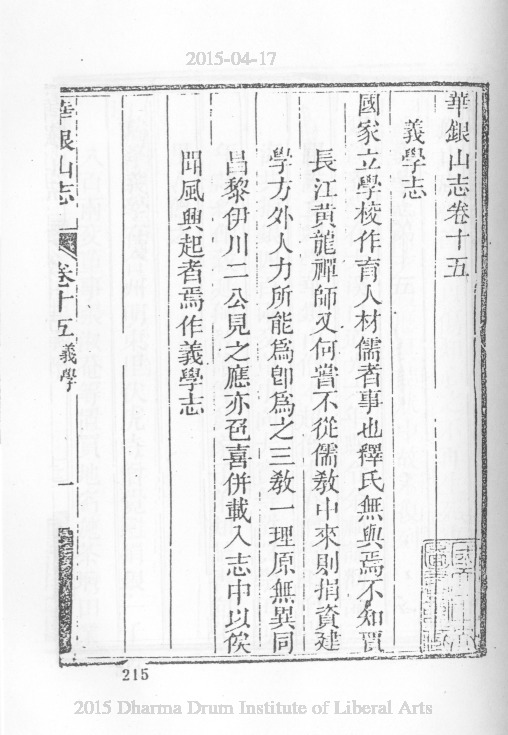 2015-04-17
華銀山志卷十五
義學志
國家立學校作育人材儒者事也釋氏無與焉不知賈
長江黃龍禪師又何嘗不從儒教中來則捐資建
學方外人力所能爲卽爲之三教一理原無異同
昌黎伊川二公見之應亦色喜併載入志中以俟
聞風興起者焉作義學志
華銀山志
卷十五 義學
一
215
2015 Dharma Drum Institute of Liberal Arts